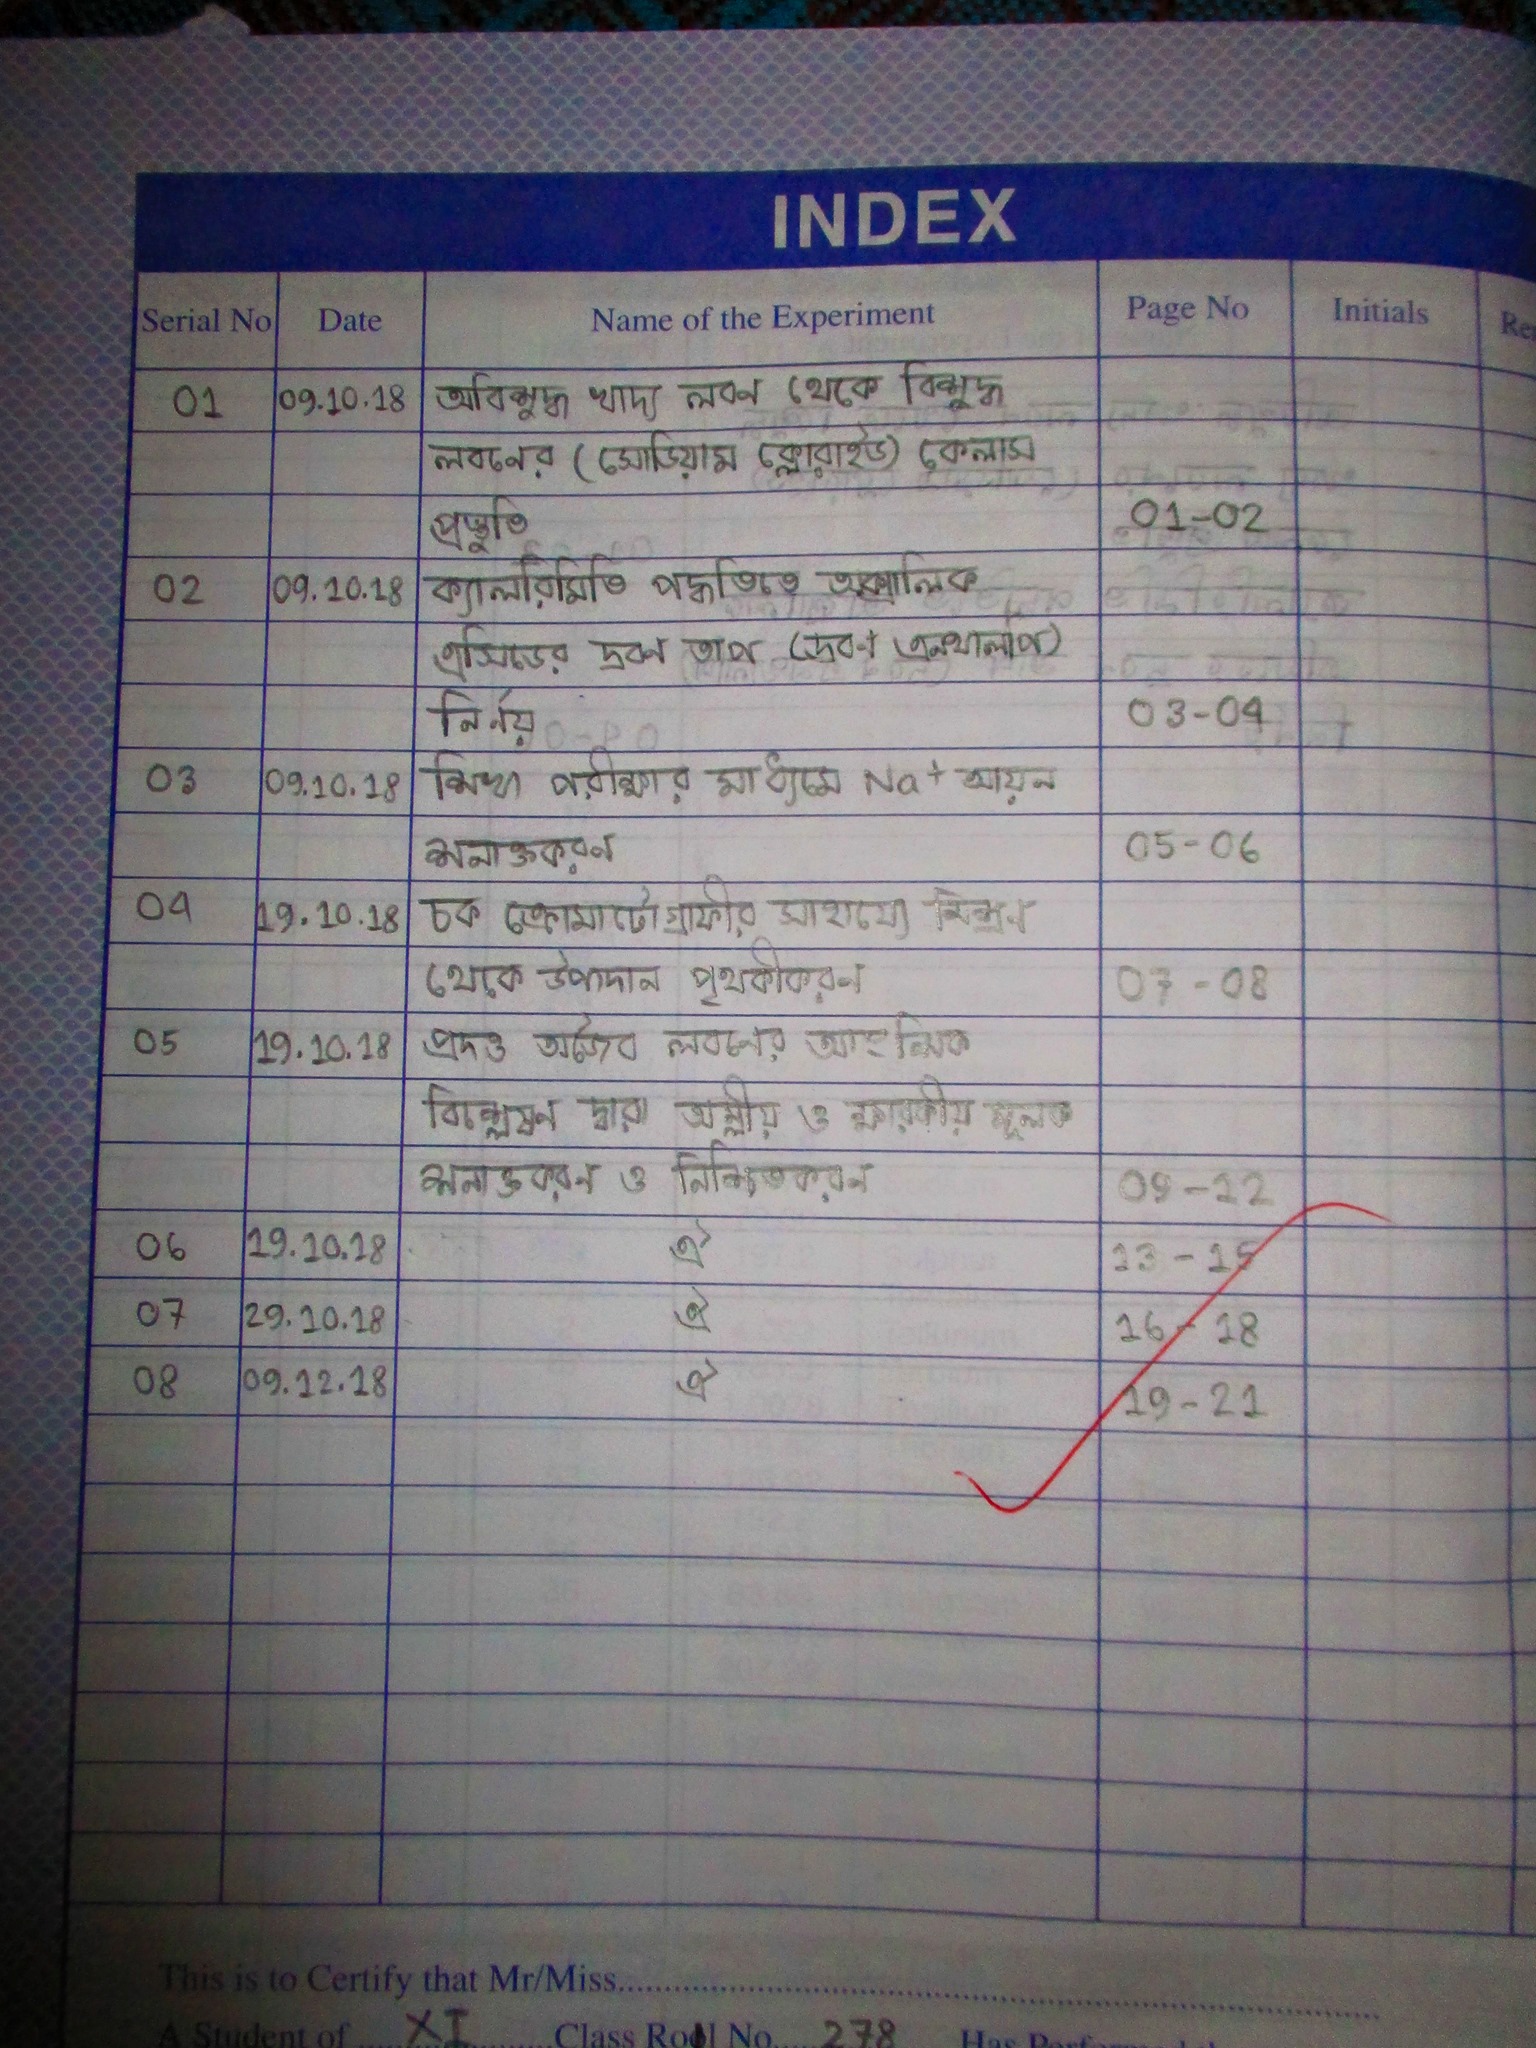 INDEX
Serial No Date Name of the Experiment Page No Initials
01 09.10.18 অবিশুদ্ধ খাদ্য লবন থেকে বিশুদ্ধ
লবনের (সোডিয়াম ক্লোরাইড) কেলাস
প্রস্তুতি 01-02
02 09.10.18 ক্যালরিমিতি পদ্ধতিতে অক্সালিক
এসিডের দ্রবণ তাপ (দ্রবণ এনথালপি)
নির্নয় 03-04
03 09.10.18 শিখা পরীক্ষার মাধ্যমে Na+ আয়ন
শনাক্তকরন 05-06
04 19.10.18 চক ক্রোমাটোগ্রাফীর সাহায্যে মিশ্রণ
থেকে উপাদান পৃথকীকরন 07-08
05 19.10.18 প্রদত্ত অজৈব লবনের আঙ্গিক
বিশ্লেষন দ্বারা অম্লীয় ও ক্ষারকীয় মূলক
শনাক্তকরন ও নিশ্চিতকরন 09-12
06 19.10.18 ঐ 13-15
07 29.10.18 ঐ 16-18
08 09.12.18 ঐ 19-21
This is to Certify that Mr/Miss
A Student of XI Class Roll No. 278 Has Performed